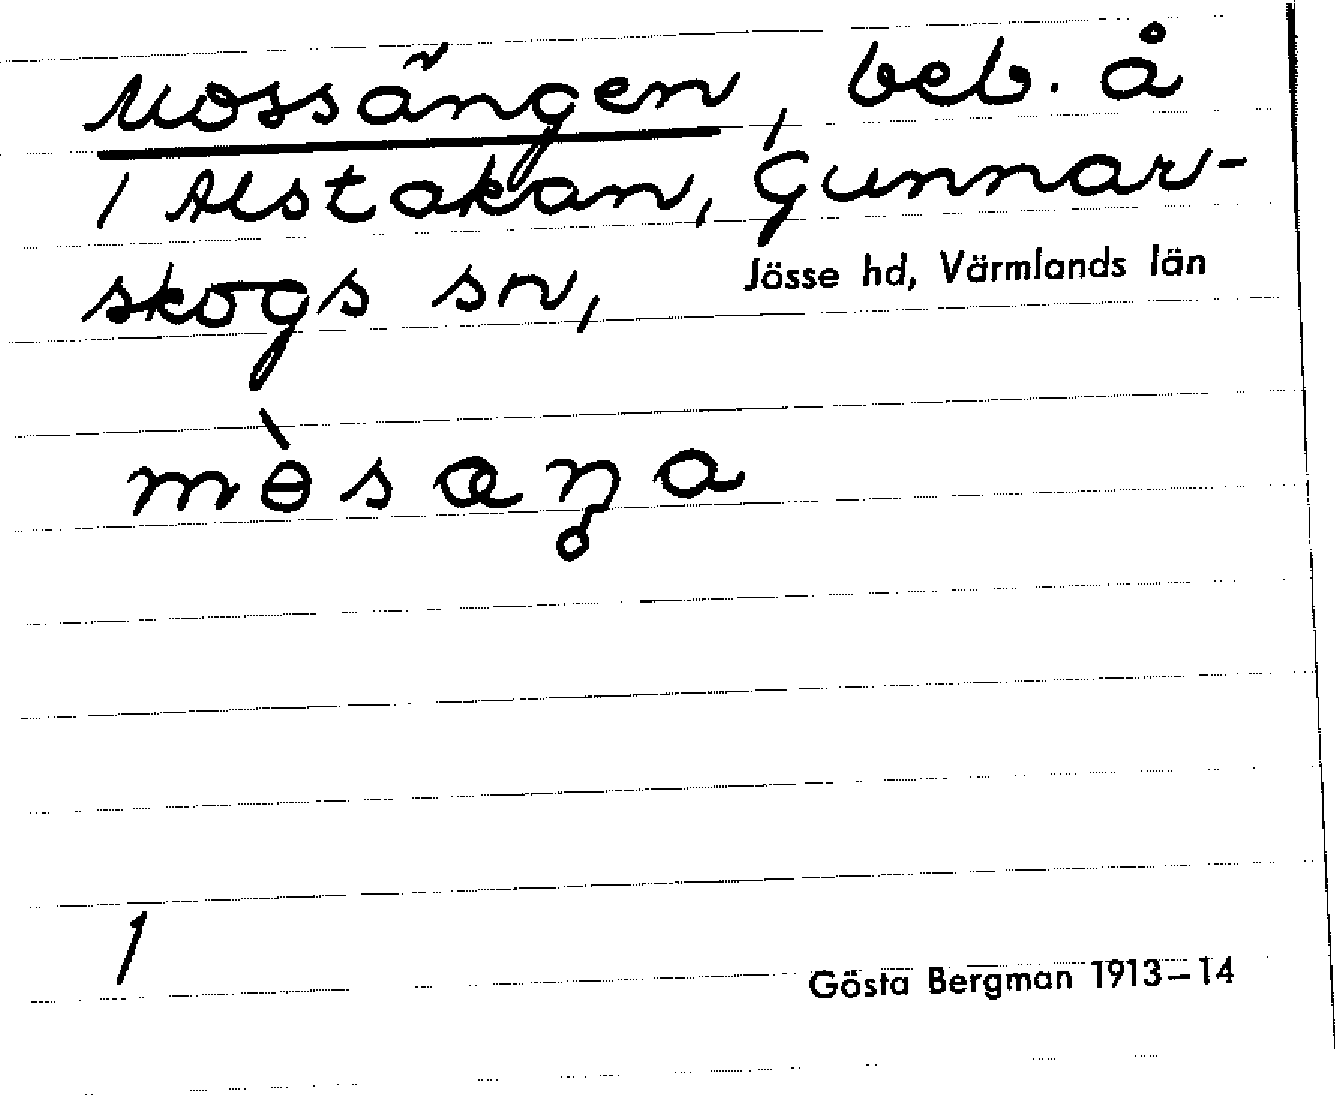 Mossängen, beb. å
1 Alstakan, Gunnar-
skogs sn, Jösse hd, Värmlands län
mɵ̀saŋa
1
Gösta Bergman 1913–14